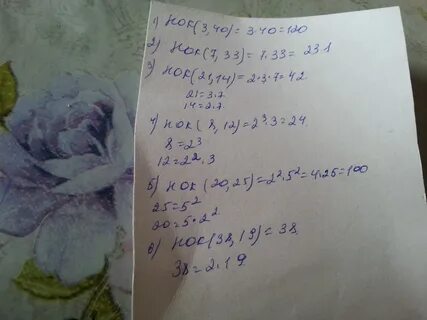 1) НОК(3,40)=3·40=120
2) НОК(7,33)=7·33=231
3) НОК(21,14)=2·3·7=42
21=3·7
14=2·7
4) НОК(8,12)=2³·3=24
8=2³
12=2²·3
5) НОК(20,25)=2²·5²=4·25=100
25=5²
20=5·2²
6) НОК(38,19)=38
38=2·19